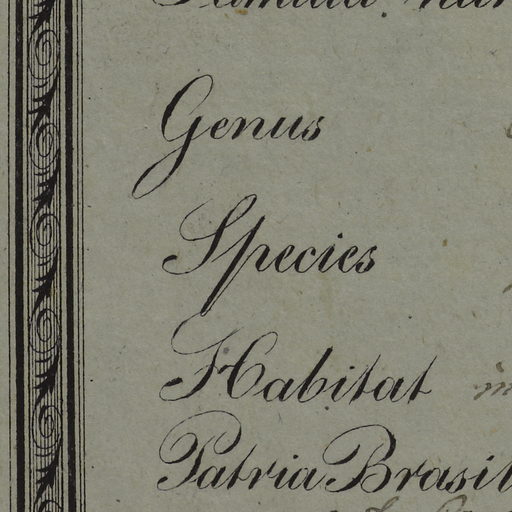 Genus
Species
Habitat
Patria Brasil